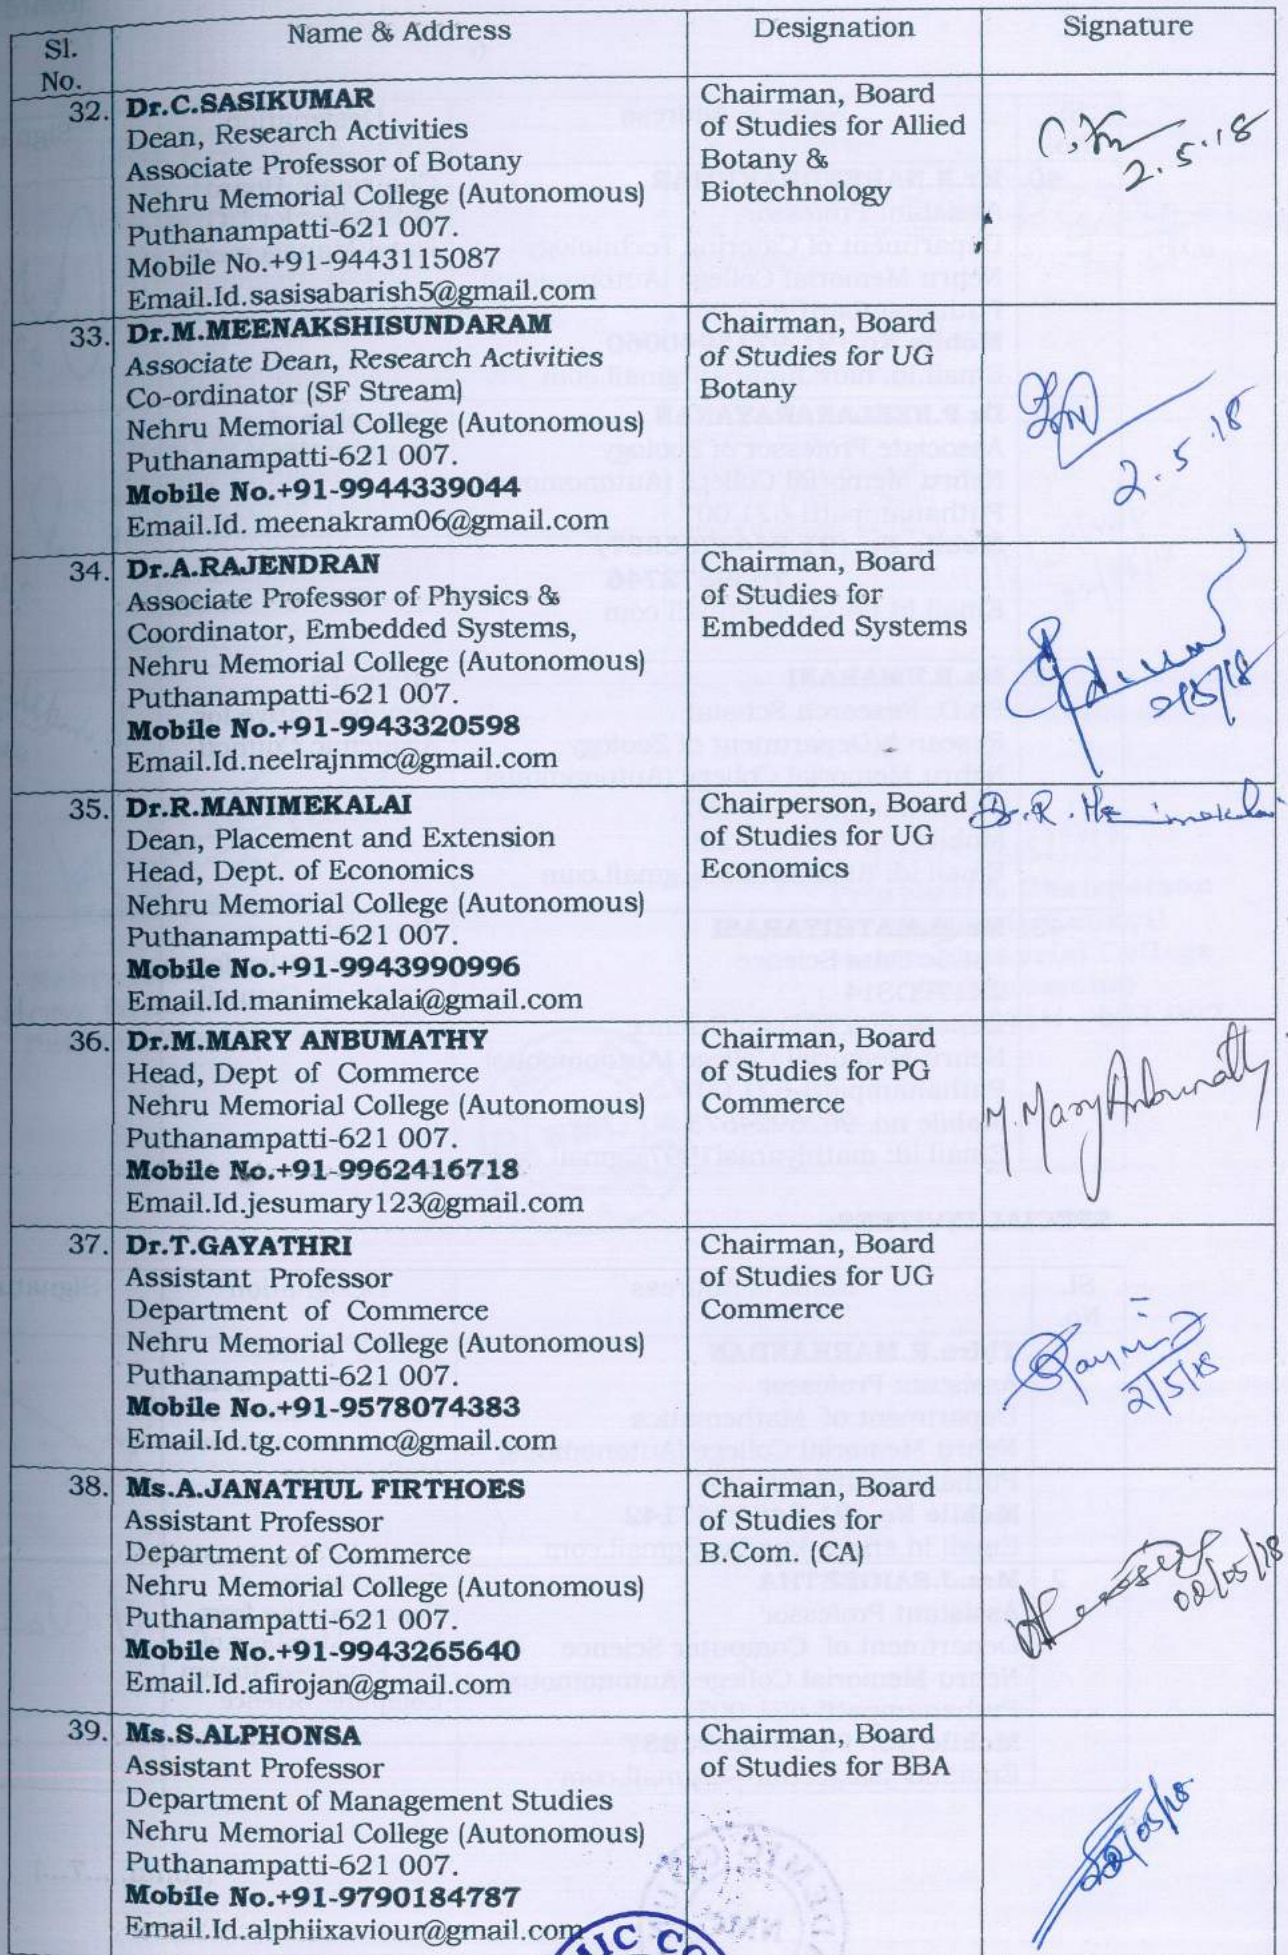 Sl.
No.
Name & Address
Designation
Signature
32.
Dr.C.SASIKUMAR
Dean, Research Activities
Associate Professor of Botany
Nehru Memorial College (Autonomous)
Puthanampatti-621 007.
Mobile No.+91-9443115087
Email.Id.sasisabarish5@gmail.com
Chairman, Board
of Studies for Allied
Botany &
Biotechnology
2.5.18
33.
Dr.M.MEENAKSHISUNDARAM
Associate Dean, Research Activities
Co-ordinator (SF Stream)
Nehru Memorial College (Autonomous)
Puthanampatti-621 007.
Mobile No.+91-9944339044
Email.Id. meenakram06@gmail.com
Chairman, Board
of Studies for UG
Botany
2.5.18
34.
Dr.A.RAJENDRAN
Associate Professor of Physics &
Coordinator, Embedded Systems,
Nehru Memorial College (Autonomous)
Puthanampatti-621 007.
Mobile No.+91-9943320598
Email.Id.neelrajnmc@gmail.com
Chairman, Board
of Studies for
Embedded Systems
2/5/18
35.
Dr.R.MANIMEKALAI
Dean, Placement and Extension
Head, Dept. of Economics
Nehru Memorial College (Autonomous)
Puthanampatti-621 007.
Mobile No.+91-9943990996
Email.Id.manimekalai@gmail.com
Chairperson, Board
of Studies for UG
Economics
Dr.R.
36.
Dr.M.MARY ANBUMATHY
Head, Dept of Commerce
Nehru Memorial College (Autonomous)
Puthanampatti-621 007.
Mobile No.+91-9962416718
Email.Id.jesumary123@gmail.com
Chairman, Board
of Studies for PG
Commerce
M Mary Anbumathy
37.
Dr.T.GAYATHRI
Assistant Professor
Department of Commerce
Nehru Memorial College (Autonomous)
Puthanampatti-621 007.
Mobile No.+91-9578074383
Email.Id.tg.comnmc@gmail.com
Chairman, Board
of Studies for UG
Commerce
2/5/18
38.
Ms.A.JANATHUL FIRTHOES
Assistant Professor
Department of Commerce
Nehru Memorial College (Autonomous)
Puthanampatti-621 007.
Mobile No.+91-9943265640
Email.Id.afirojan@gmail.com
Chairman, Board
of Studies for
B.Com. (CA)
02/05/18
39.
Ms.S.ALPHONSA
Assistant Professor
Department of Management Studies
Nehru Memorial College (Autonomous)
Puthanampatti-621 007.
Mobile No.+91-9790184787
Email.Id.alphiixaviour@gmail.com
Chairman, Board
of Studies for BBA
02/05/18